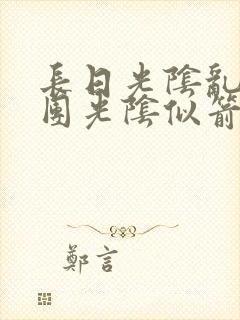 長日光陰亂
團光陰似箭
鄭言